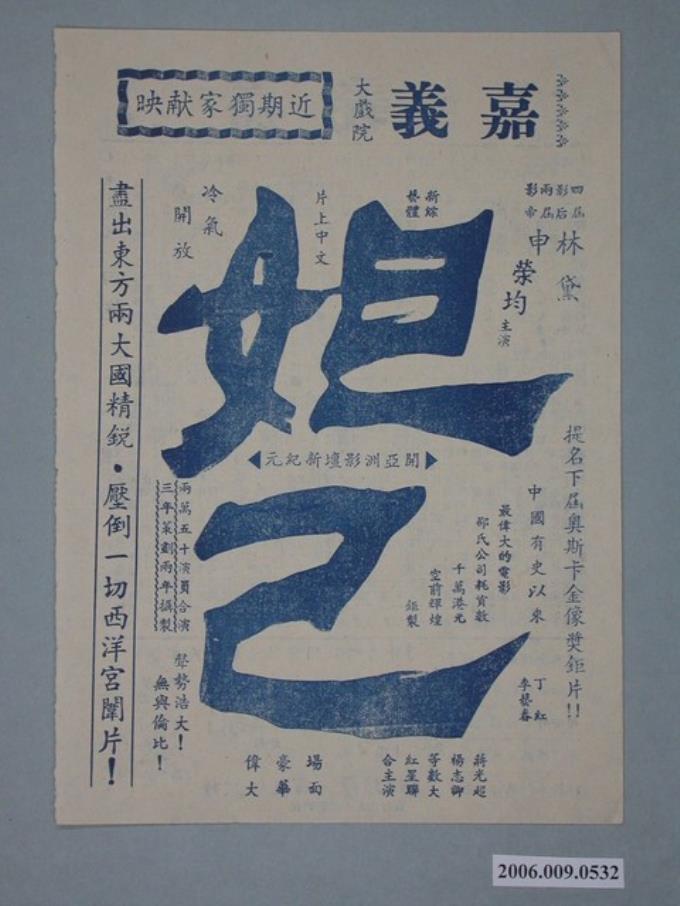 嘉義
大戲院
近期獨家献映
四屆影后
兩屆影帝
林黛
申榮均
主演
新綜藝體
片上中文
冷氣開放
妲己
開亞洲影壇新紀元
提名下屆奧斯卡金像獎鉅片!!
中國有史以來
最偉大的電影
邵氏公司耗資數
千萬港元
空前輝煌
鉅製
兩萬五千演員合演
三年策劃兩年攝製
聲勢浩大！
無與倫比！
丁紅
李藝春
蔣光超
楊志卿
等數大
紅星聯
合主演
場面
豪華
偉大
盡出東方兩大國精銳·壓倒一切西洋宮闈片！
2006.009.0532